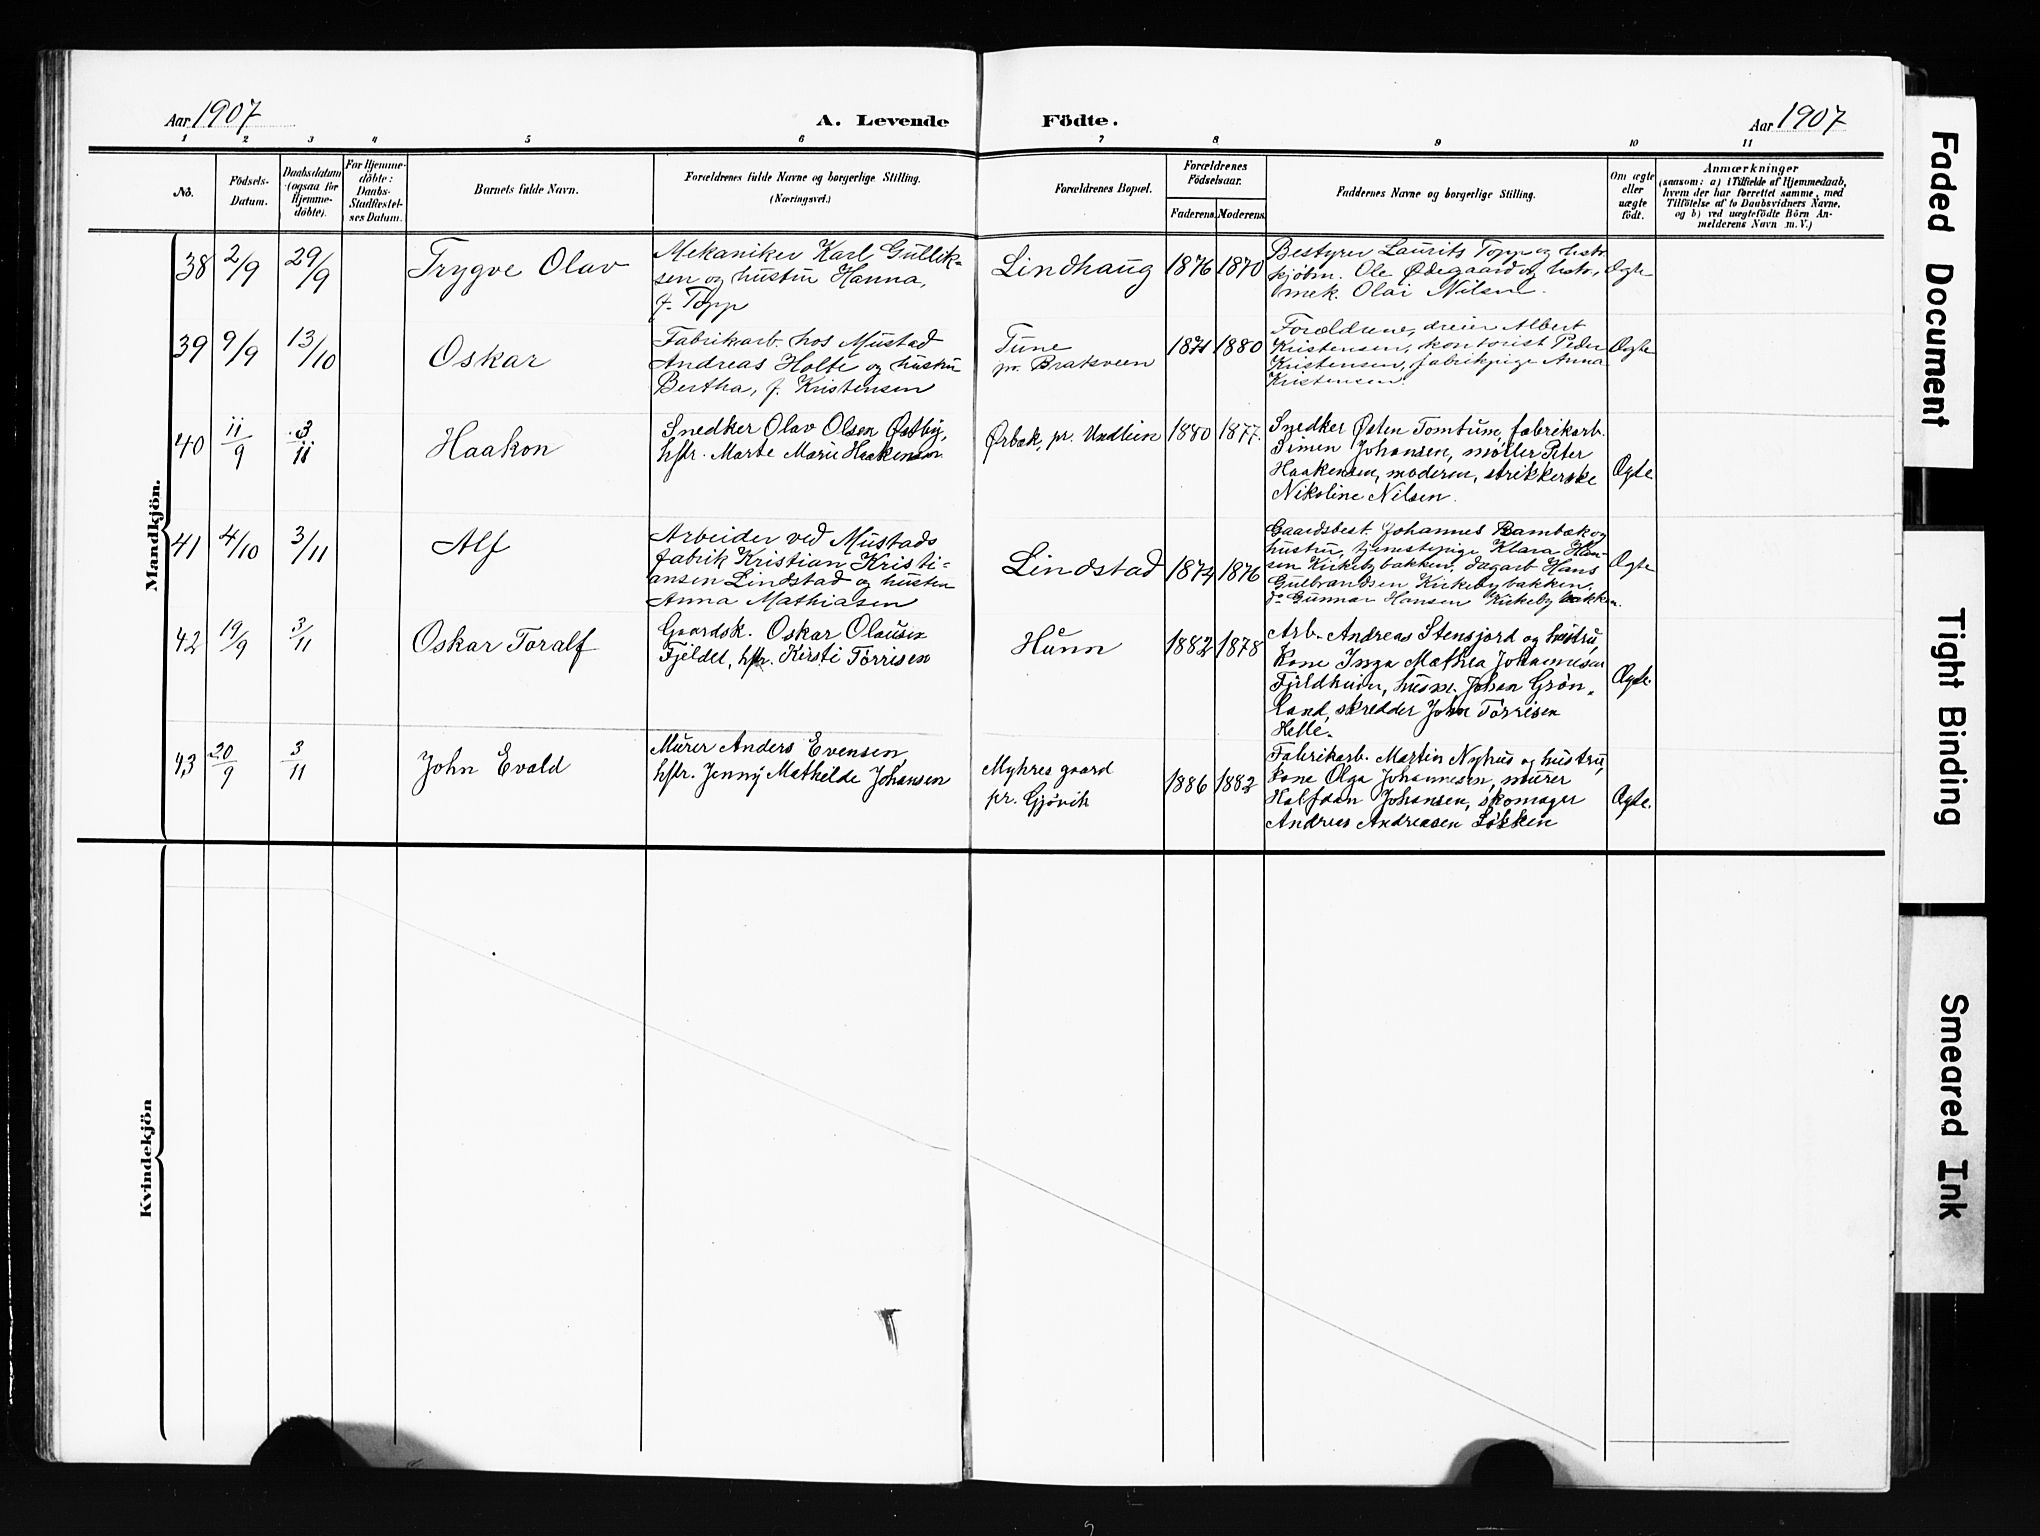 Aar 1907
A. Levende
Födte.
Aar 1907
1 2 3 4 5 6 7 8 9 10 11
No.
Födsels-
Datum.
Daabsdatum
(ogsaa for
Hjemme-
döbte).
For Hjemme-
döbte:
Daabs-
Stadfæstel-
ses Datum.
Barnets fulde Navn.
Forældrenes fulde Navne og borgerlige Stilling.
(Næringsvei.)
Forældrenes Bopæl.
Forældrenes
Födselsaar.
Faderens. Moderens.
Faddernes Navne og borgerlige Stilling.
Om ægte
eller
uægte
födt.
Anmærkninger
(saasom: a) i Tilfælde af Hjemmedaab,
hvem der har forrettet samme, med
Tilföielse af to Daabsvidners Navne,
og b) ved uægtefödte Börn An-
melderens Navn m. V.)
Mandkjön.
38
2/9
29/9
Trygve Olav
Mekaniker Karl Gullik-
sen og hustru Hanna,
f. Topp
Lindhaug
1876
1870
Bestyrer Laurits Topp og hstr.
kjøbm. Ole Ødegaard og hstr.,
mek. Olai Nilsen.
Ægte
39
9/9
13/10
Oskar
Fabrikarb. hos Mustad
Andreas Holte og hustru
Bertha, f. Kristensen
Tune
pr. Braksveen
1871
1880
Forældrene, dreier Albert
Kristensen, kontorist Peder
Kristensen, fabrikpige Anna
Kristensen.
Ægte
40
11/9
3/11
Haakon
Snedker Olav Olsen Østby,
hstr. Marte Marie Haakensen
Ørbæk, pr. Undlien
1880
1877.
Snedker Østen Tomtum, fabrikarb.
Simen Johansen, møller Peter
Haakensen, moderen, strikkerske
Nikoline Nilsen.
Ægte
41
4/10
3/11
Alf
Arbeider ved Mustads
fabrik Kristian Kristi-
ansen Lindstad og hustru
Anna Mathiasen
Lindstad
1874
1876
Gaardsbest. Johannes Bambæk og
hustru, tjenestepige Klara Han-
sen Kirkebybakken, dagarb. Hans
Gulbrandsen Kirkebybakken,
do Gunnar Hansen Kirkebybakken.
Ægte
42
19/9
3/11
Oskar Toralf
Gaardsk. Oskar Olausen
Fjeldet, hstr. Kirsti Torrisen
Hunn
1882
1878
Arb. Andreas Stensjord og hustru,
kone Inga Mathea Johannesen
Fjeldheim, husm. Johan Grøn-
land, skredder John Torrisen
Helle.
Ægte.
43
20/9
3/11
John Evald
Murer Anders Evensen,
hstr. Jenny Mathilde Johansen
Myhres gaard
pr. Gjøvik
1886
1882
Fabrikarb. Martin Nyhus og hustru,
kone Olga Johannesen, murer
Halfdan Johansen, skomager
Andreas Andreasen Løkken
Ægte.
Kvindekjön
Faded Document
Tight Binding
Smeared Ink